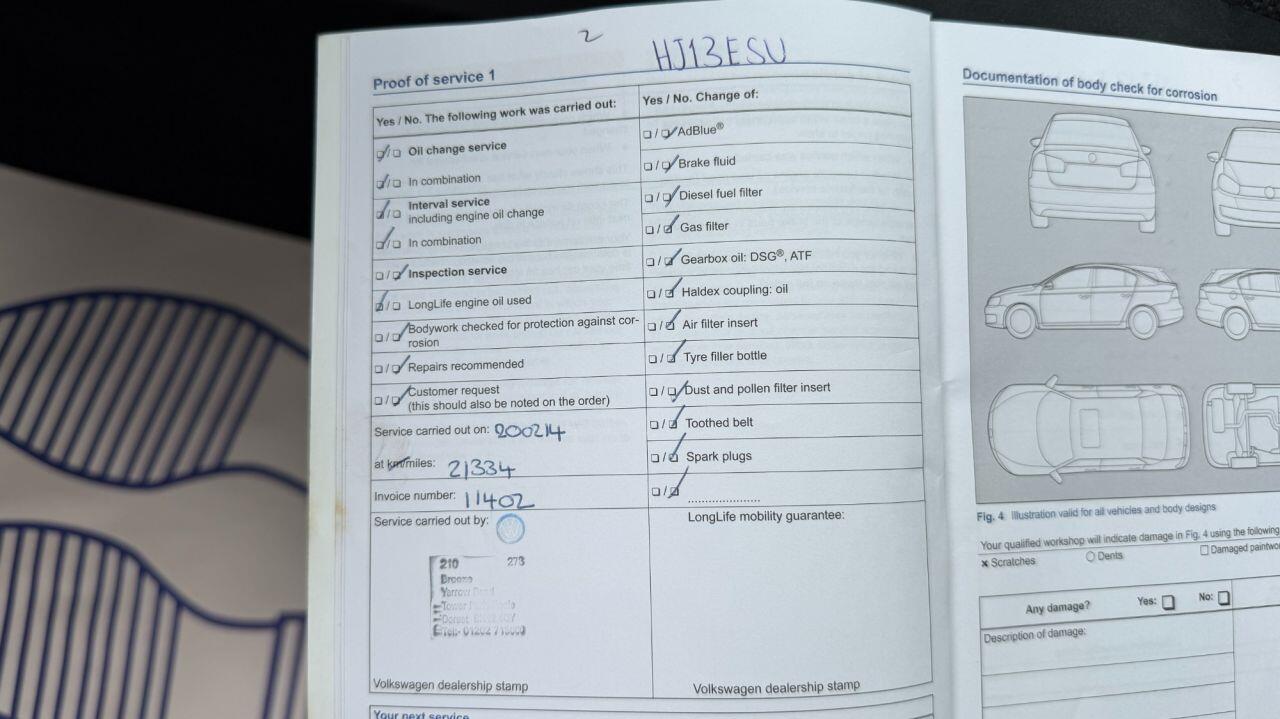 2
HJ13ESU
Proof of service 1
Yes / No. The following work was carried out:
☑/☐ Oil change service
☑/☐ In combination
☑/☐ Interval service
including engine oil change
☑/☐ In combination
☐/☑ Inspection service
☑/☐ LongLife engine oil used
☐/☑ Bodywork checked for protection against cor-
rosion
☐/☑ Repairs recommended
☐/☑ Customer request
(this should also be noted on the order)
Service carried out on: 200214
at km/miles: 21334
Invoice number: 11402
Service carried out by:
210 273
Breeze
Yarrow
Tower
Dorset
Tel:- 01202
Volkswagen dealership stamp
Yes / No. Change of:
☐/☑ AdBlue®
☐/☑ Brake fluid
☐/☑ Diesel fuel filter
☐/☑ Gas filter
☐/☑ Gearbox oil: DSG®, ATF
☐/☑ Haldex coupling: oil
☐/☑ Air filter insert
☐/☑ Tyre filler bottle
☐/☑ Dust and pollen filter insert
☐/☑ Toothed belt
☐/☑ Spark plugs
☐/☑ .....................
LongLife mobility guarantee:
Volkswagen dealership stamp
Your next service
Documentation of body check for corrosion
Fig. 4 Illustration valid for all vehicles and body designs
Your qualified workshop will indicate damage in Fig. 4 using the following
× Scratches ○ Dents ☐ Damaged
Any damage? Yes: ☐ No: ☐
Description of damage: